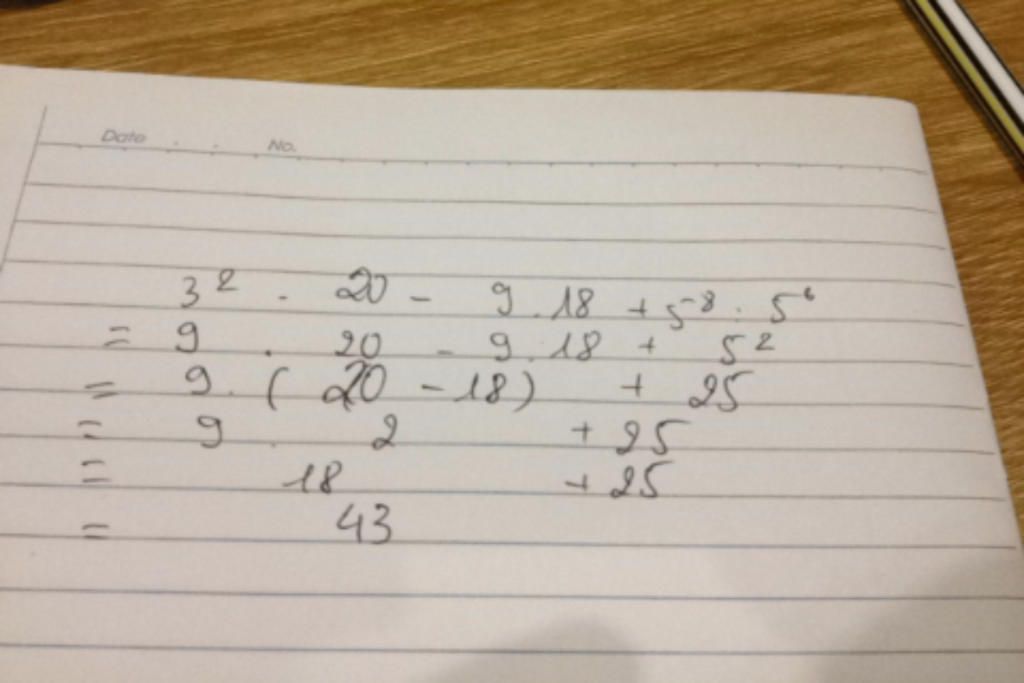 Date . . No.
3² . 20 - 9 . 18 + 5⁻⁸ : 5⁶
= 9 . 20 - 9 . 18 + 5²
= 9 . ( 20 - 18 ) + 25
= 9 . 2 + 25
= 18 + 25
= 43